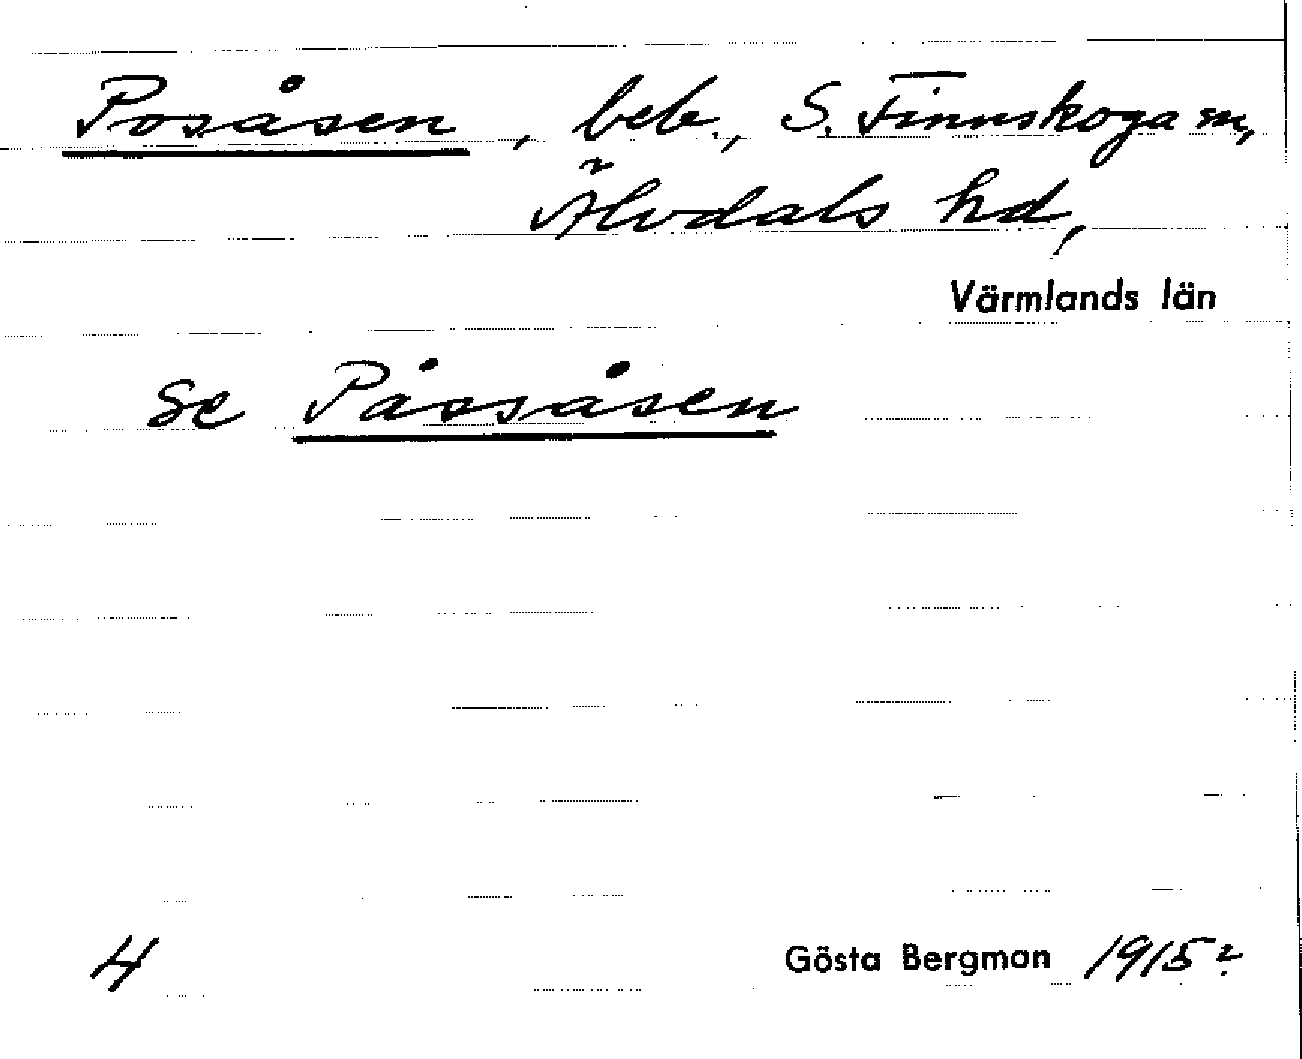 Posåsen, beb., S. Finnskoga sn,
Älvdals hd,
Värmlands län
se Påssåsen
4 Gösta Bergman 1915?